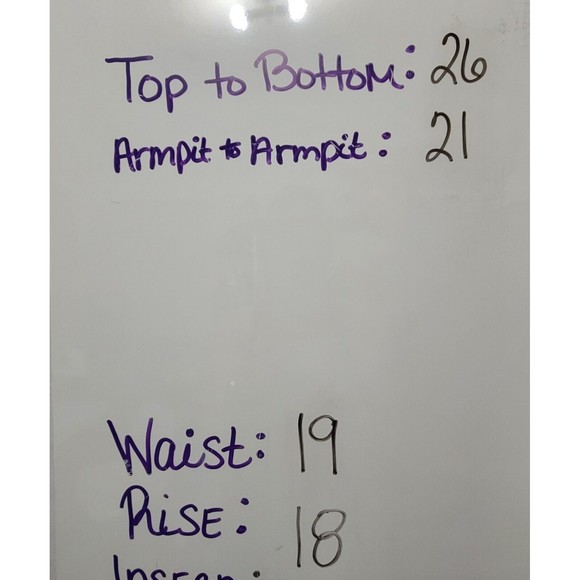 Top to Bottom: 26
Armpit to Armpit: 21
Waist: 19
Rise: 18